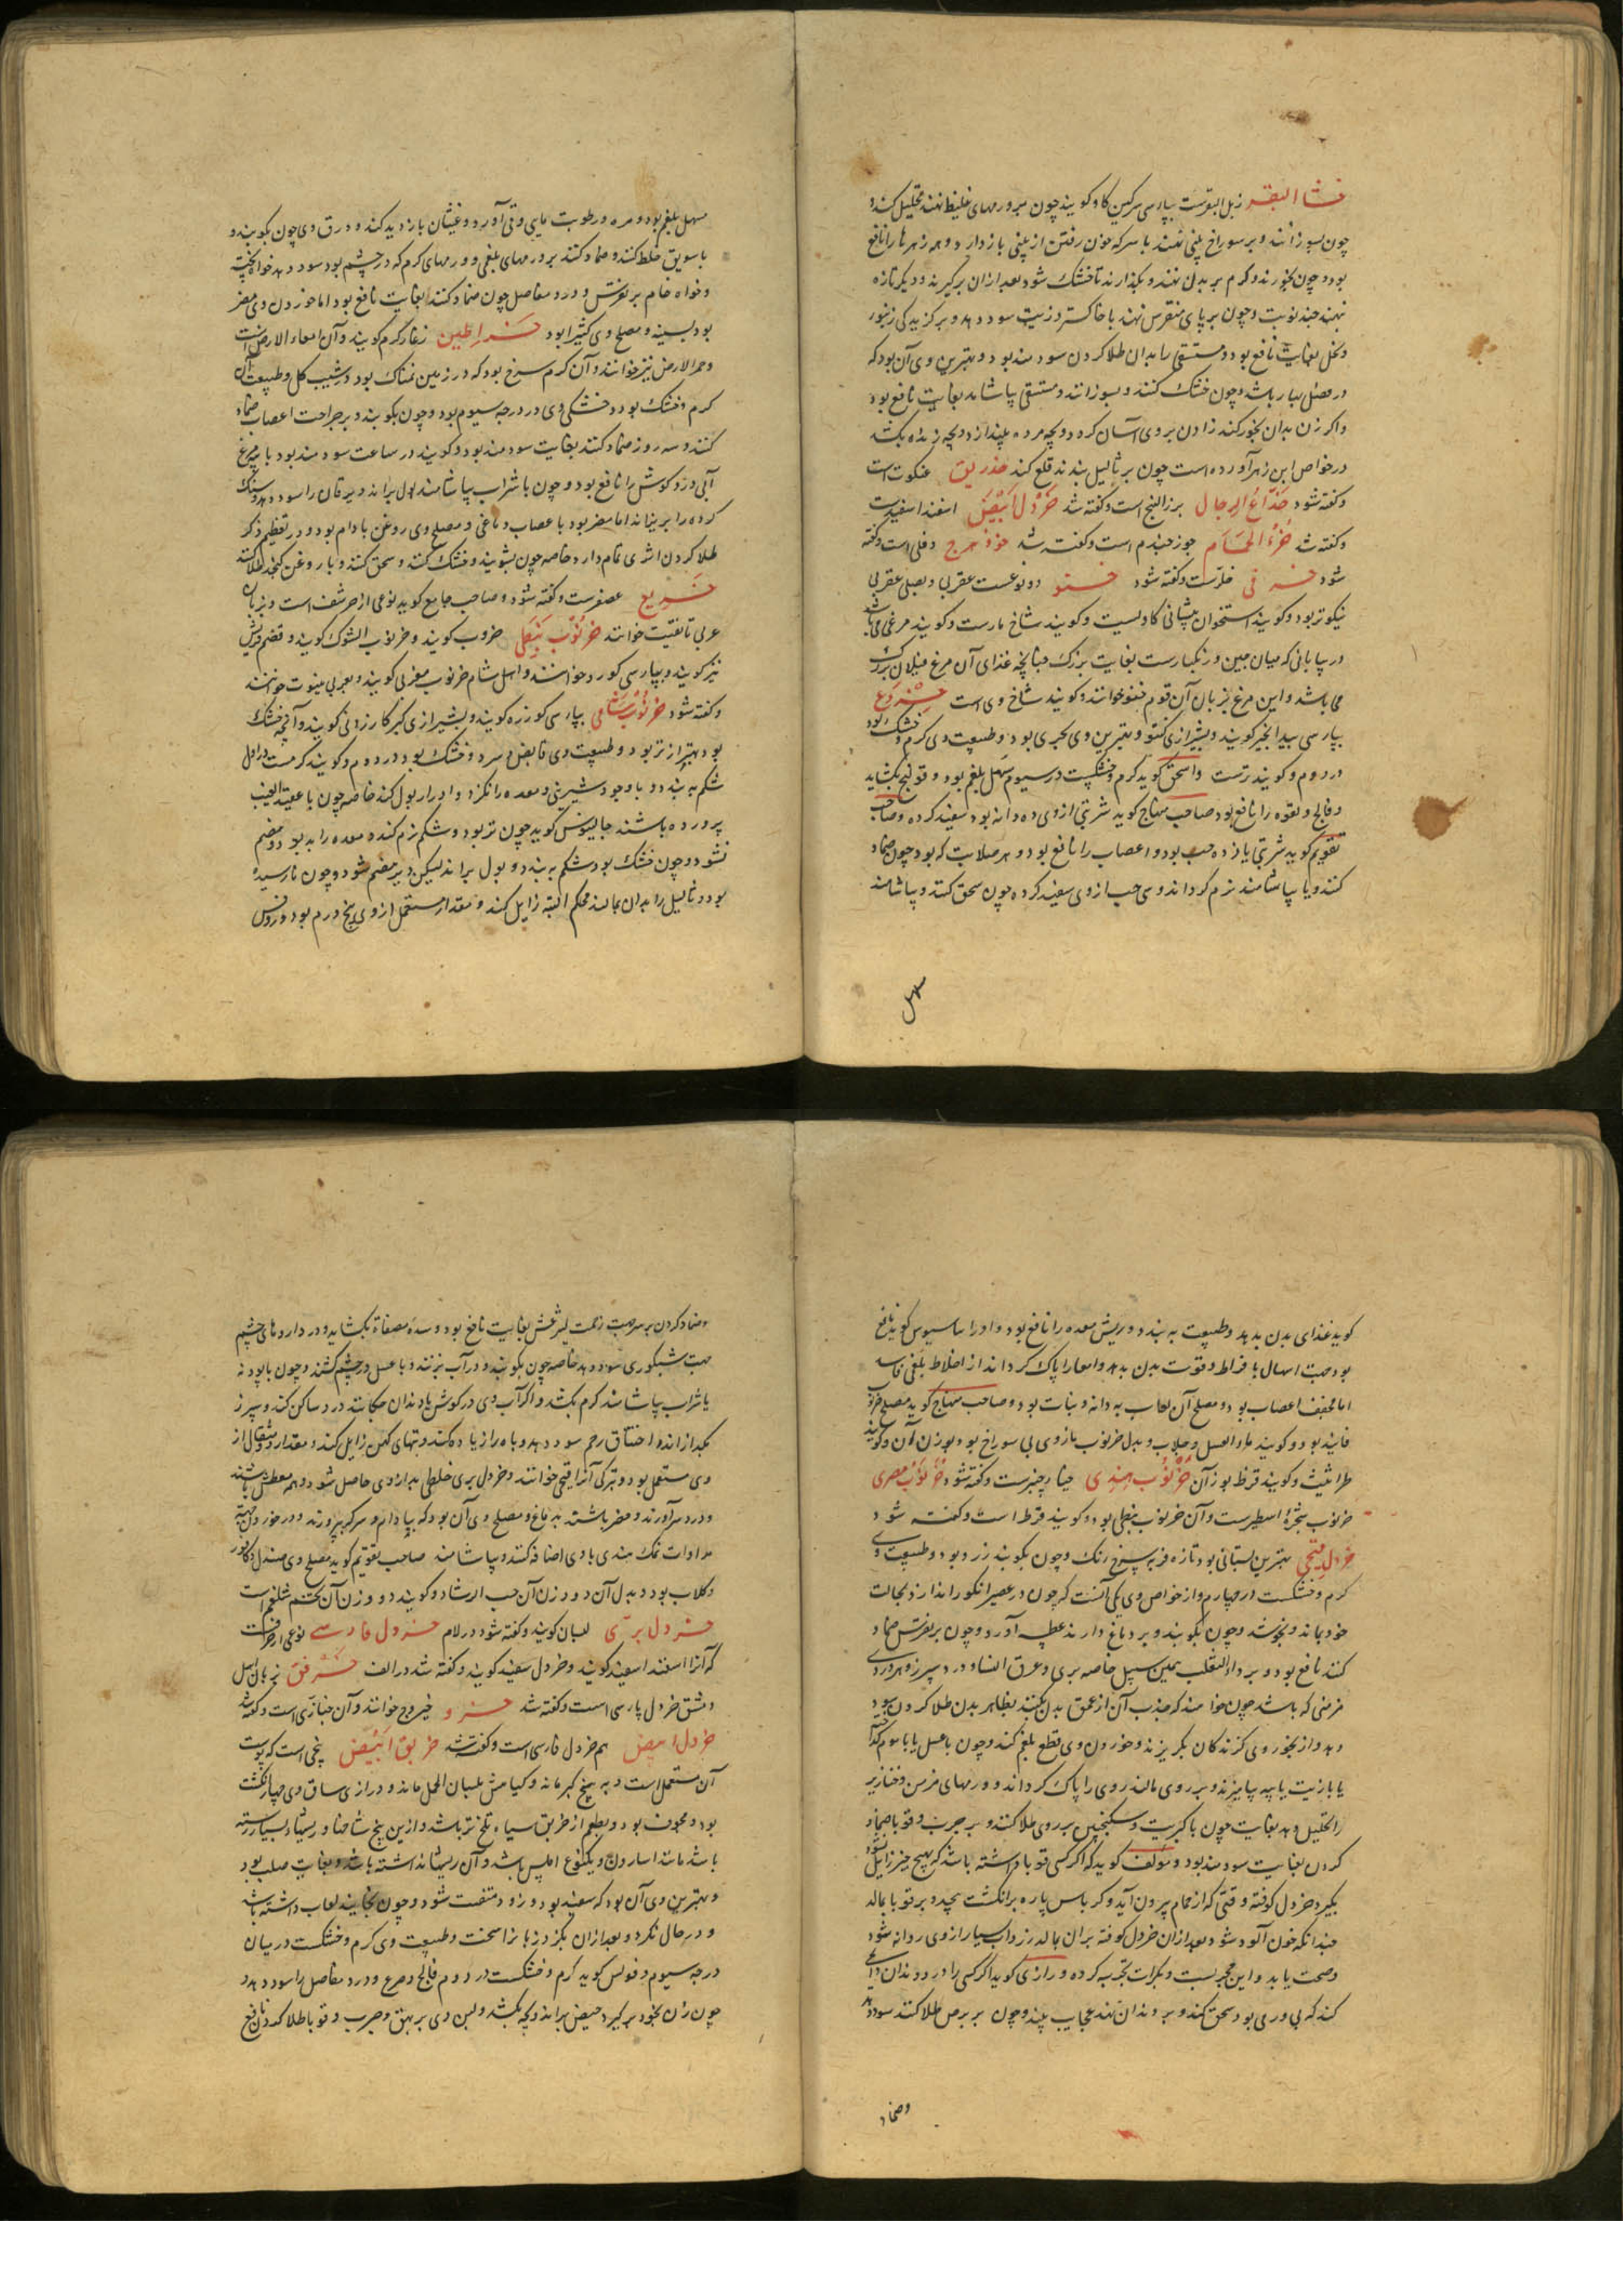 خثاء البقر زبل البقرست بپارسی سرکین کاو کویند چون برورمهای غلیظ نهند تحلیل کند و
چون بسوزانند و بر سوراخ بینی نهند با سرکه خون رفتن از بینی باز دارد و همه زهرها را نافع
بود و چون بخورند و کرم بر بدن نهند و بکذارند تا خشک شود بعد ازان برکیرند و دیکر تازه
نهند چند نوبت و چون بر پای منقرس نهند با خاکستر و زیت سود دهد و بر کزیدکی زنبور
و نحل بغایت نافع بود و مستسقی را بدان طلا کردن سودمند بود و بهترین وی آن بود که
در فصل بهار باشد و چون خشک کنند و بسوزانند و مستسقی بیاشامد بغایت نافع بود
و اکر زن بدان بخور کند زادن بروی آسان کردد و بچه مرده بیندازد و بچه زنده بکشد
در خواص ابن زهر آورده است چون بر ثالیل بندند قلع کند خذریق عنکبوت است
و کفته شود خداع الرجال بزرالبنج است و کفته شد خردل ابیض اسفند اسفیدست
و کفته شد خرء الحمام جوز جندم است و کفته شد خرزهرج دفلی است و کفته
شود خسرفی خلرست و کفته شود ختو دو نوعست عقربی و بصلی عقربی
نیکوتر بود و کویند استخوان پیشانی کاویست و کویند شاخ مارست و کویند مرغی می‌باشد
در بیابانی که میان چین و زنکبارست بغایت بزرک چنانچه غذای آن مرغ فیلان بزرک
می باشد و این مرغ بزبان آن قوم ختو خوانند و کویند شاخ وی است خروع
بپارسی بیدانجیر کویند و بشیرازی کنتو و بهترین وی بحری بود و طبیعت وی کرم و خشک بود
در دوم و کویند ترست و اسحق کوید کرم و خشکیست در سیوم مسهل بلغم بود و قولنج بکشاید
و فالج و لقوه را نافع بود صاحب منهاج کوید شربتی از وی ده دانه بود سفید کرده و صاحب
تقویم کوید شربتی یازده حب بود و اعصاب را نافع بود و هر صلابت که بود چون ضماد
کنند و یا بیاشامند نرم کرداند و سی حب از وی سفید کرده چون سحق کنند و بیاشامند
مسهل
مسهل بلغم بود و مره و رطوبت مایی و قی آورد و غثیان بازدید کند و ورق وی چون بکوبند و
با سویق خلط کنند و ضماد کنند بر ورمهای بلغمی و ورمهای کرم که در چشم بود سود دهد خواه پخته
و خواه خام بر نقرس و درد مفاصل چون ضماد کنند بغایت نافع بود اما خوردن وی مضر
بود بسینه و مصلح وی کثیرا بود خراطین زغار کرم کویند و آن امعاء الارض است
و حمر الارض نیز خوانند و آن کرم سرخ بود که در زمین نمناک بود در شیب کل و طبیعت آن
کرم و خشک بود و خشکی وی در درجه سیوم بود و چون بکوبند و بر جراحت اعصاب ضماد
کنند و سه روز ضماد کنند بغایت سودمند بود و کویند در ساعت سودمند بود با پیه مرغ
آبی درد کوش را نافع بود و چون با شراب بیاشامند بول براند و یرقان را سود دهد و سنک
کرده را بریزاند اما مضر بود با عصاب دماغی و مصلح وی روغن بادام بود و در تعظیم ذکر
طلا کردن اثری تمام دارد خاصه چون بشویند و خشک کنند و سحق کنند و با روغن کنجد طلا کنند
خریع عصفرست و کفته شود و صاحب جامع کوید نوعی از حرشف است و بزبان
عربی تافغیت خوانند خرنوب نبطی خروب کویند و خرنوب الشوک کویند و قضم قریش
نیز کویند و بپارسی کورد خوانند و اهل شام خرنوب مغربی کویند و بعربی ینبوت خوانند
و کفته شود خرنوب شامی بپارسی کورزه کویند و بشیرازی کبرکا رزونی کویند و آنچه خشک
بود بهتر از تر بود و طبیعت وی قابض و سرد و خشک بود در دوم و کویند کرمست در اول
شکم ببندد و با وجود شیرینی و معده را نکزد و ادرار بول کند خاصه چون با عقید العنب
پرورده باشند جالینوس کوید چون تر بود و شکم نرم کند و معده را بد بود و هضم
نشود و چون خشک بود شکم ببندد و بول براند لیکن دیر هضم شود و چون نارسیده
بود و ثالیل را بدان بمالند محکم البته زایل کند و مقدار مستعمل از وی پنج درم بود و روفس
کوید غذای بدن بد دهد و طبیعت ببندد و ریش معده را نافع بود و او را ساسیوس کوید نافع
بود جهت اسهال بافراط و قوت بدن بدهد و امعا را پاک کرداند از اخلاط بلغمی فاسد
اما مجفف اعصاب بود و مصلح آن لعاب به دانه و نبات بود و صاحب منهاج کوید مصلح خرنوب
فانید بود و کویند ماء العسل و جلاب و بدل خرنوب مازوی بی سوراخ بود بوزن آن و کویند
طراثیث و کویند قرظ بوزن آن خرنوب هندی خیار چنبرست و کفته شود خرنوب مصری
خرنوب شجرة اسطیرست و آن خرنوب نبطی بود و کویند قرظ است و کفته شود
خردل بهترین بستانی بود تازه فربه سرخ رنک و چون بکوبند زرد بود و طبیعت وی
کرم و خشکست در چهارم و از خواص وی یکی آنست که چون در عصیر انکور اندازند بحالت
خود بماند و نجوشد و چون بکوبند و بر دماغ دارند عطسه آورد و چون بر نقرس ضماد
کنند نافع بود و بر داء الثعلب همین سبیل خاصه بری و عرق النسا و درد سپرز و هر دردی
مزمنی که باشد چون خواهند که جذب آن از عمق بدن بکنند بظاهر بدن طلا کردن سود
دهد و از بخور وی کزندکان بکریزند و خوردن وی قطع بلغم کند و چون با عسل یا با موم کداخته
یا با زیت یا پیه بیامیزند و بر روی مالند روی را پاک کرداند و ورمهای مزمن و خنازیر
را تحلیل دهد بغایت چون با کبریت و سکنجبین بر روی طلا کنند و بر جرب و قوبا ضماد
کردن بغایت سودمند بود و مؤلف کوید که اکر کسی قوبا داشته باشد که بهیچ چیز زایل نشود
بکیرد خردل کوفته و قتی که از حمام بیرون آید و کرباس پاره بر انکشت پیچد و بر قوبا بمالد
چندانکه خون آلود شود و بعد ازان خردل کوفته بران بمالد زرداب بسیار از وی روانه شود
و صحت یابد و این مجربست و بکرات تجربه کرده و رازی کوید اکر کسی را درد دندان
کند که بی ورمی بود سحق کنند و بر دندان نهند عجایب بیند و چون بر برص طلا کنند سود دهد
وضماد
وضماد کردن بر سر جهت زحمت لیثرغس بغایت نافع بود و سده مصفاة بکشاید و در داروهای چشم
جهت شبکوری سود دهد خاصه چون بکوبند و در آب بزنند و با عسل در چشم کشند و چون با پودنه
یا شراب بیاشامند کرم بکشد و اکر آب وی در کوش یا دندان چکانند درد ساکن کند و سپرز
بکدازاند و اختناق رحم سود دهد و باه را زیاده کند و تبهای کهن زایل کند و مقدار دو مثقال از
وی مستعمل بود و بترکی آنرا قیجی خوانند و خردل بری خلطی بد ازوی حاصل شود و همه معطش باشند
و درد سر آورند و مضر باشند بدماغ و مصلح وی آن بود که ببادام و سرکه بپرورند و در خوردن
مداوات نمک هندی با وی اضافه کنند و بیاشامند صاحب تقویم کوید مصلح وی صندل و کافور
و کلاب بود و بدل آن دو وزن آن حب الرشاد و کویند دو وزن آن تخم شلغم است
خردل بری لبسان کویند و کفته شود در لام خردل فارسی نوعی از حرفست
که آنرا اسفند اسفید کویند و خردل سفید کویند و کفته شد در الف خشرفق بزبان اهل
دمشق خردل پارسی است و کفته شد خرو خیروج خوانند و آن خبازی است و کفته شد
خردل ابیض هم خردل فارسی است و کفته شد خربق ابیض بیخی است که پوست
آن مستعمل است و به بیخ کبر ماند و کیامش بلسان الحمل ماند و درازی ساق وی چهار انکشت
بود و مجوف بود و بطعم از خربق سیاه تلخ‌تر باشد و ازین بیخ شاخها و ریشهاء بسیار رسته
باشد مانند اسارون و یکنوع املس باشد و آن ریشها نداشته باشد و بغایت صلب بود
و بهترین وی آن بود که سفید بود و زود متفتت شود و چون بخایند لعاب داشته باشد
و در حال نکزد و بعد ازان بکزد زبانرا سخت و طبیعت وی کرم و خشکست در میان
درجه سیوم و فولس کوید کرم و خشکست در دوم فالج و صرع و درد مفاصل را سود دهد
چون زن بخود برکیرد حیض براند و بچه بکشد و لبن وی بر بهق و جرب و قوبا طلا کردن نافع